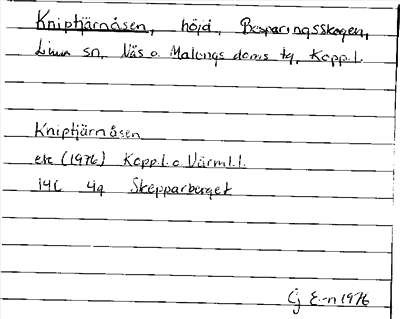 Kniptjärnåsen, höjd, Besparingsskogen,
Lima sn, Näs o. Malungs doms tg, Kopp.l.
Kniptjärnåsen
ek (1976) Kopp.l. o Värml.l.
14C 4g Skepparberget
Cj E-n 1976